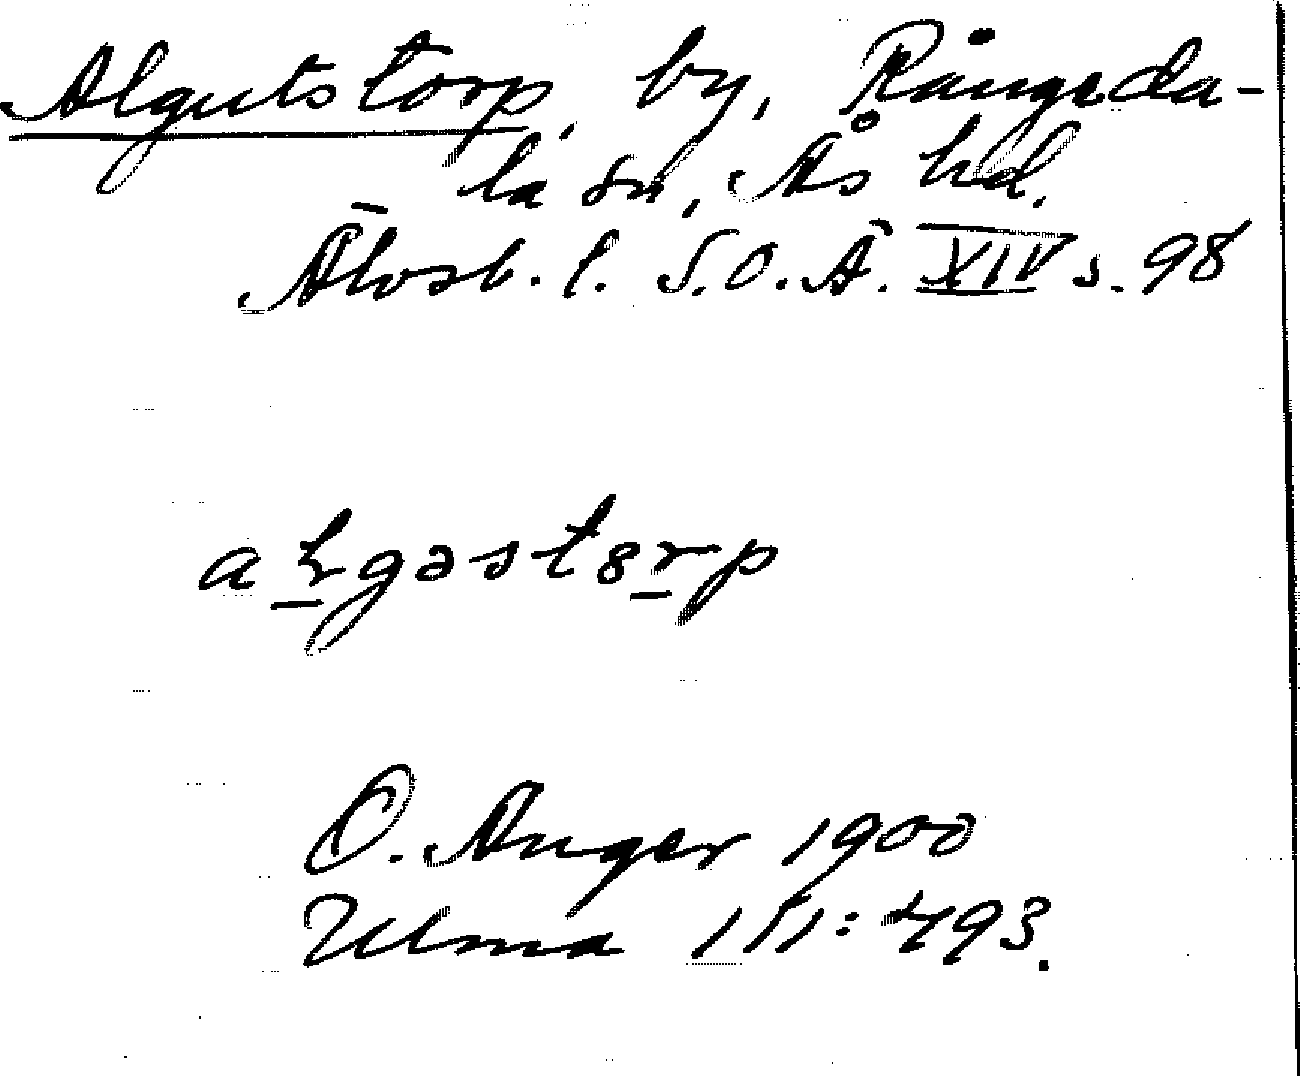 Algutstorp, by, Rångeda-
la sn, Ås hd.
Älvsb. l. S.O.Ä. XIV s. 98
aꞎgəstɞrp
O. Anger 1900
Ulma 151: 493.